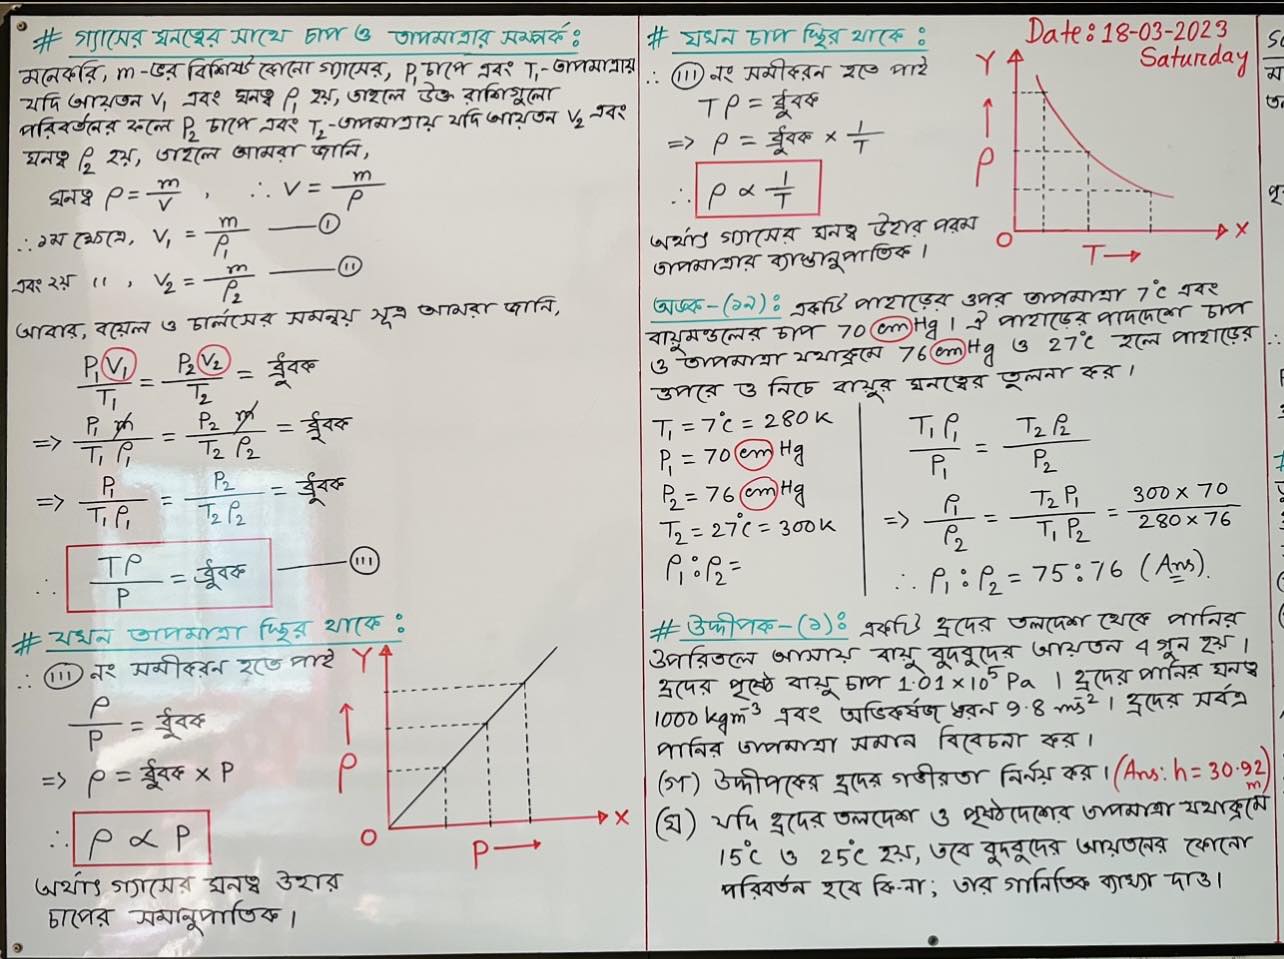 # গ্যাসের ঘনত্বের সাথে চাপ ও তাপমাত্রার সম্পর্ক :
মনেকরি, m-ভর বিশিষ্ট কোনো গ্যাসের, P₁ চাপে এবং T₁-তাপমাত্রায়
যদি আয়তন V₁ এবং ঘনত্ব ρ₁ হয়, তাহলে উক্ত রাশিগুলো
পরিবর্তনের ফলে P₂ চাপে এবং T₂-তাপমাত্রায় যদি আয়তন V₂ এবং
ঘনত্ব ρ₂ হয়, তাহলে আমরা জানি,
ঘনত্ব ρ = m/V , ∴ V = m/ρ
∴ ১ম ক্ষেত্রে, V₁ = m/ρ₁ —— (I)
এবং ২য় " , V₂ = m/ρ₂ —— (II)
আবার, বয়েল ও চার্লসের সমন্বয় সূত্র আমরা জানি,
P₁V₁/T₁ = P₂V₂/T₂ = ধ্রুবক
=> P₁ m/T₁ ρ₁ = P₂ m/T₂ ρ₂ = ধ্রুবক
=> P₁/T₁ρ₁ = P₂/T₂ρ₂ = ধ্রুবক
∴ Tρ/P = ধ্রুবক —— (III)
# যখন তাপমাত্রা স্থির থাকে :
∴ (III) নং সমীকরন হতে পাই
ρ/P = ধ্রুবক
=> ρ = ধ্রুবক × P
∴ ρ ∝ P
অর্থাৎ গ্যাসের ঘনত্ব উহার
চাপের সমানুপাতিক।
Y
ρ
O
P →
X
# যখন চাপ স্থির থাকে :
∴ (III) নং সমীকরন হতে পাই
Tρ = ধ্রুবক
=> ρ = ধ্রুবক × 1/T
∴ ρ ∝ 1/T
অর্থাৎ গ্যাসের ঘনত্ব উহার পরম
তাপমাত্রার ব্যাস্তানুপাতিক।
Date: 18-03-2023
Saturday
Y
ρ
O
T →
X
অংক-(১৯) : একটি পাহাড়ের ওপর তাপমাত্রা 7°C এবং
বায়ুমণ্ডলের চাপ 70 cm Hg। ঐ পাহাড়ের পাদদেশে চাপ
ও তাপমাত্রা যথাক্রমে 76 cm Hg ও 27°C হলে পাহাড়ের
ওপরে ও নিচে বায়ুর ঘনত্বের তুলনা কর।
T₁ = 7°C = 280K
P₁ = 70 cm Hg
P₂ = 76 cm Hg
T₂ = 27°C = 300K
ρ₁ : ρ₂ =
T₁ρ₁/P₁ = T₂ρ₂/P₂
=> ρ₁/ρ₂ = T₂P₁/T₁P₂ = 300 × 70/280 × 76
∴ ρ₁ : ρ₂ = 75 : 76 (Ans).
# উদ্দীপক-(১) : একটি হ্রদের তলদেশ থেকে পানির
উপরিতলে আসায় বায়ু বুদবুদের আয়তন 4 গুন হয়।
হ্রদের পৃষ্ঠে বায়ু চাপ 1.01×10⁵ Pa । হ্রদের পানির ঘনত্ব
1000 kgm⁻³ এবং অভিকর্ষজ ত্বরন 9.8 ms⁻²। হ্রদের সর্বত্র
পানির তাপমাত্রা সমান বিবেচনা কর।
(গ) উদ্দীপকের হ্রদের গভীরতা নির্নয় কর। (Ans: h = 30.92 m)
(ঘ) যদি হ্রদের তলদেশ ও পৃষ্ঠদেশের তাপমাত্রা যথাক্রমে
15°C ও 25°C হয়, তবে বুদবুদের আয়তনের কোনো
পরিবর্তন হবে কি-না; তার গানিতিক ব্যাখ্যা দাও।